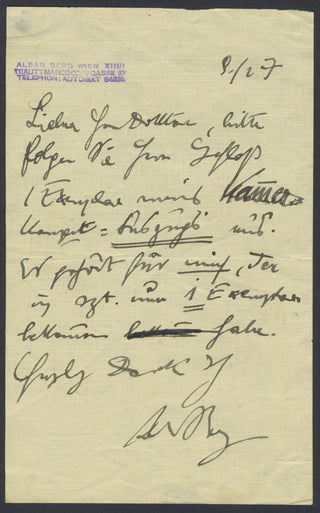 ALBAN BERG WIEN XIII/1
TRAUTTMANSDORFFGASSE 27
TELEPHON: AUTOMAT 84831
9./2 7
Lieber Herr Doktor, bitte
folgen Sie Frau
1 Exemplar meines Kammer-
Konzert = Auszugs aus.
Er gehört für mich, der
ich szt. nur 1 Exemplar
bekommen habe.
Dank